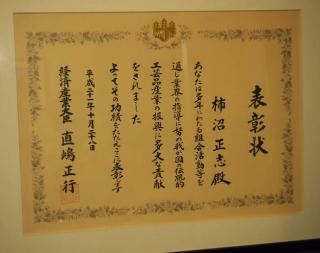 表彰状
柿沼正志殿
あなたは多年にわたる組合活動等を
通し業界の指導に努め我が国の伝統的
工芸品産業の振興に多大な貢献
をされました
よってその功績をたたえここに表彰します
平成二十一年十月二十八日
経済産業大臣 直嶋正行